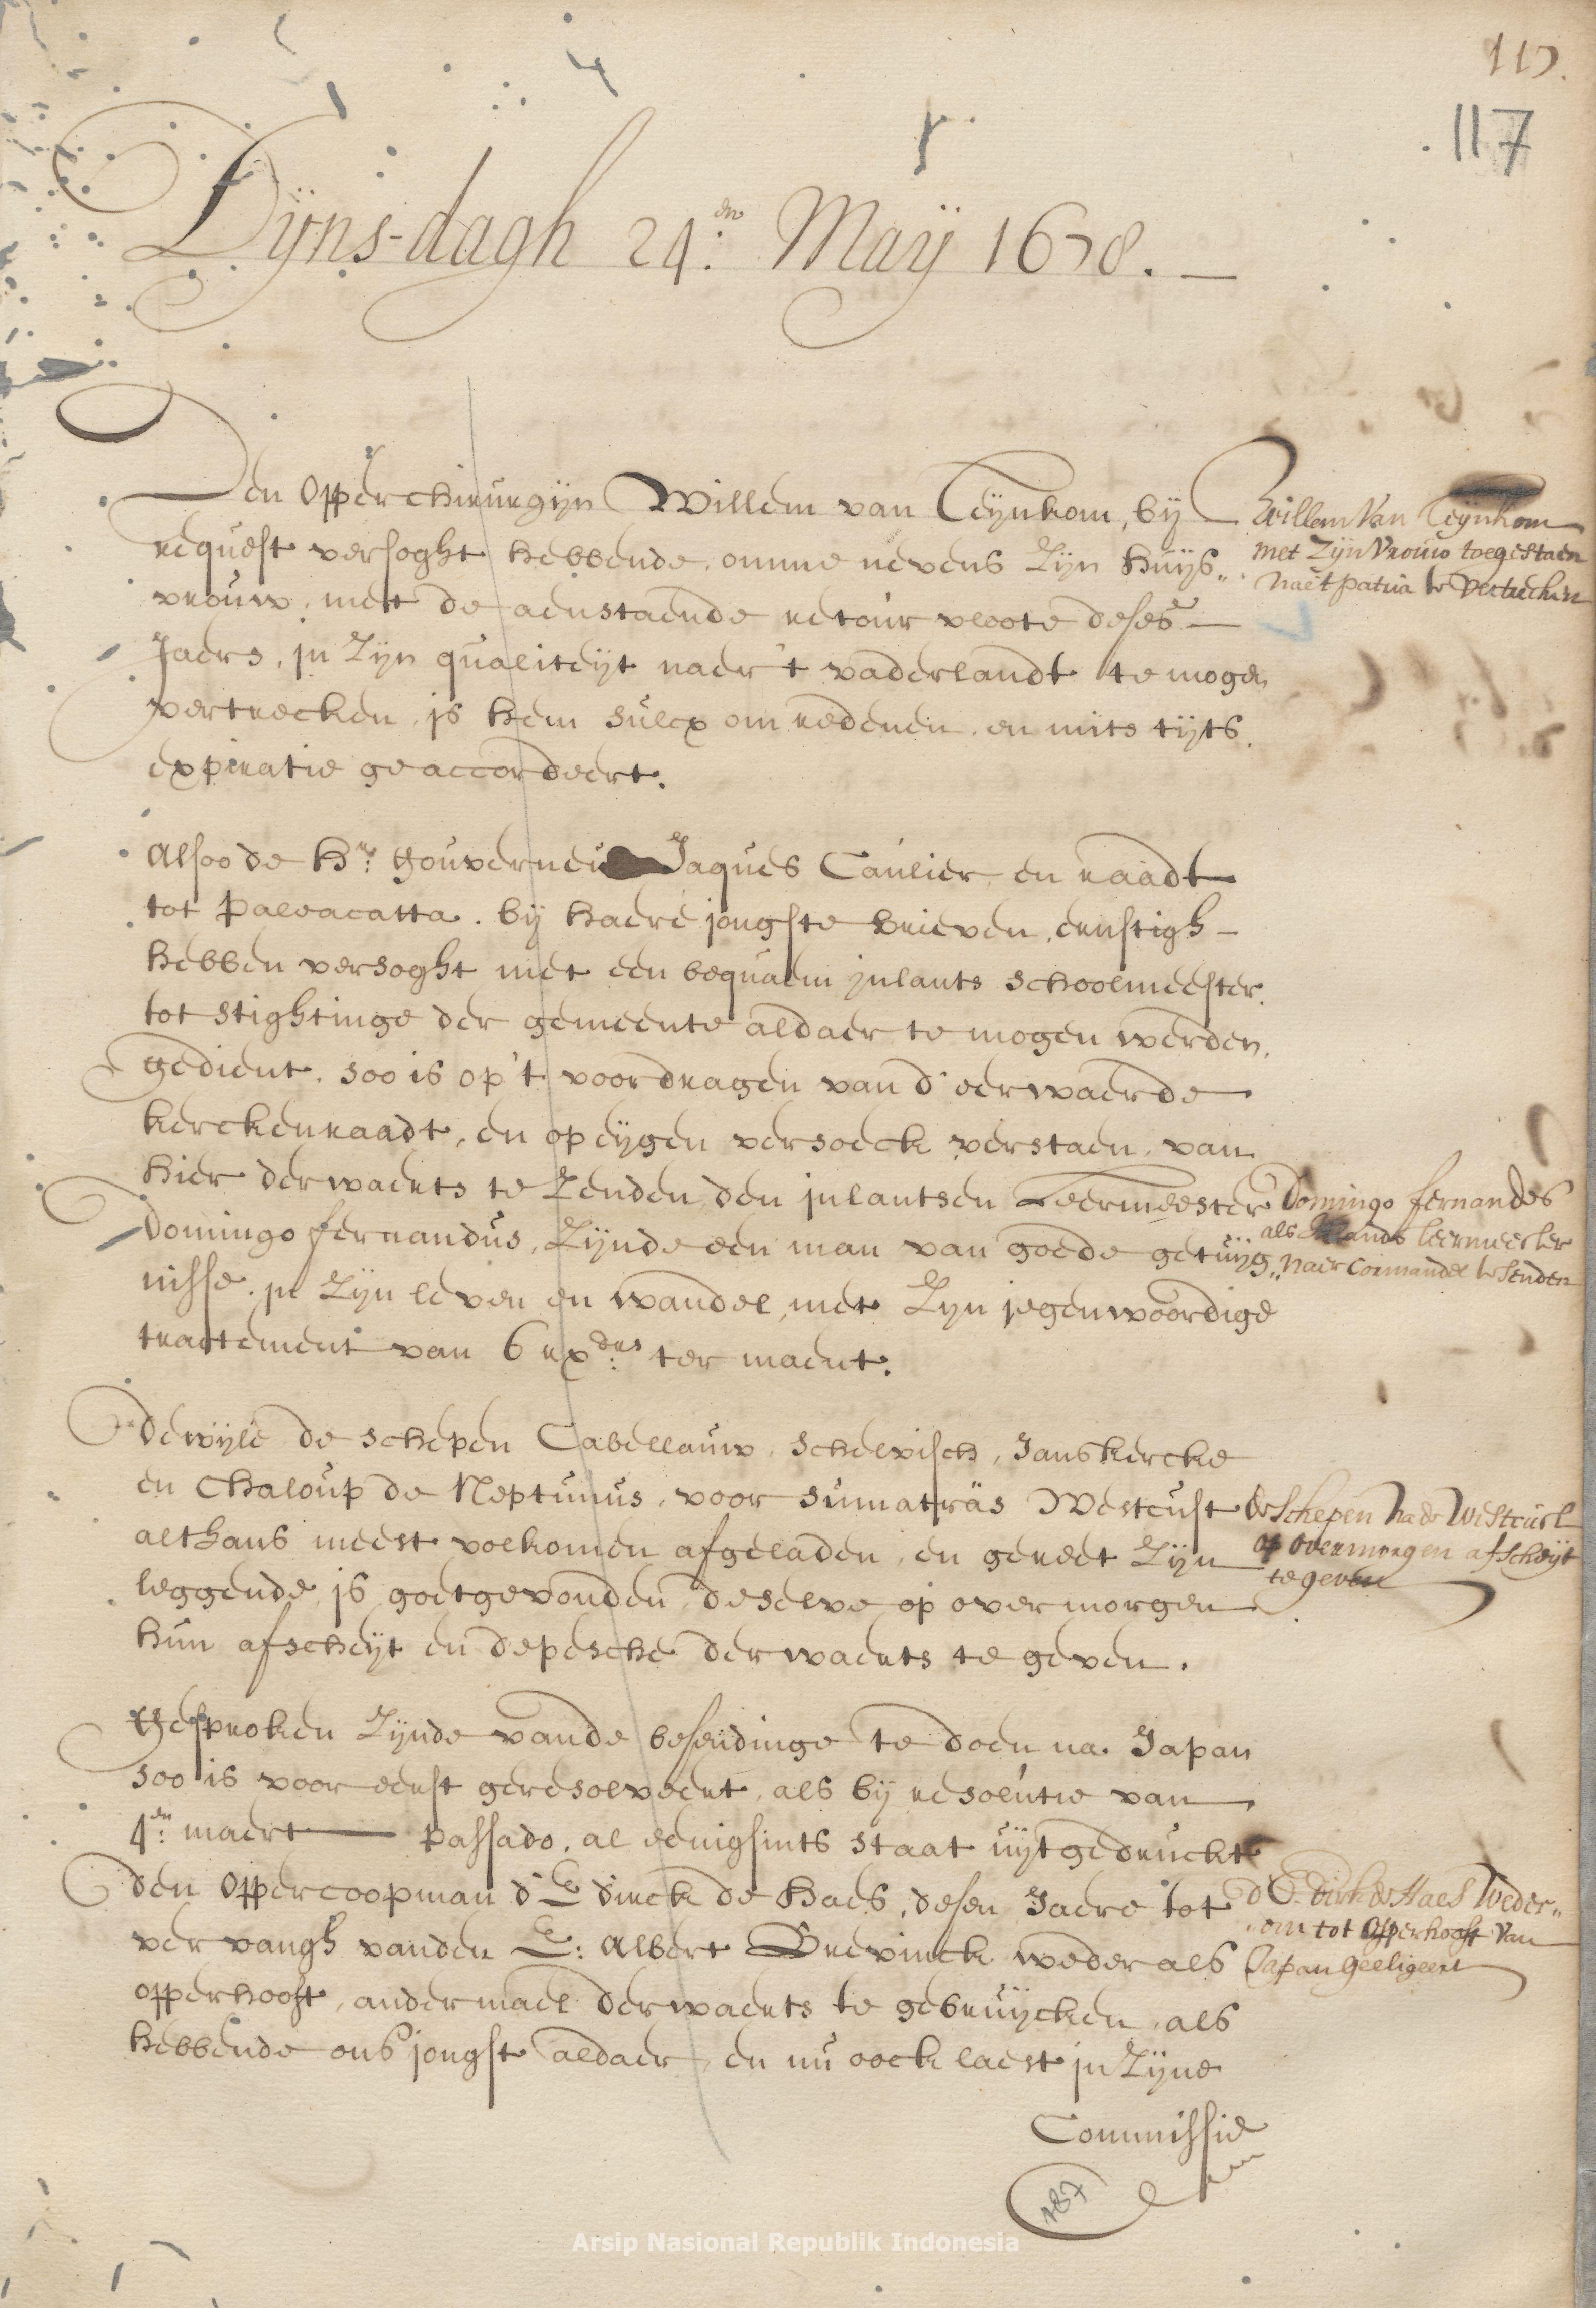 117.
117
Dÿns-dagh 24:en Maÿ 1678. —
Den Opperchirurgijn Willem van Teijnkom, bij
request versoght hebbende, omme nevens Zijn huijs„
vrouw, met de aenstaende retour vloote deses —
Jaers, in Zijn qualiteijt naer 't vaderlandt te mogen
vertrecken, is hem sulcx om redenen, en mits tijts
expiratie geaccordeert.
Willem Van Teijnkom
met Zijn Vrouw toegestaen
naer 't patria te vertrecken
Alsoo de Hr: Gouverneur Jaques Caulier en raadt
tot Paleacatta. bij haere jongste brieven, ernstigh —
hebben versoght met een bequaem inlants schoolmeester
tot stightinge der gemeente aldaer te mogen werden
gedient. soo is op 't voordragen van d' eerwaerde
kerckenraadt, en op eijgen versoeck verstaen, van
hier derwaerts te Zenden, den inlantsen Leermeester
Domingo fernandus, Zijnde een man van goede getuijg„
nisse, in Zijn leven en wandel, met Zijn jegenwoordige
tractement van 6 rxdrs: ter maent.
Domingo fernandes
als Inlands leermeester
naer Cormandel te senden
dewijle de schepen Cabellauw, Schelvisch, Janskercke
en Chaloup de Neptunus, voor sumatras Westcust
althans meest volkomen afgeladen, en gereet Zijn
leggende, is goetgevonden, deselve op overmorgen
hun afscheijt en depesche derwaerts te geven.
de Schepen na de Westcust
op overmorgen afscheijt
te geven
Gesproken Zijnde vande besendinge te doen na Japan
soo is voor eerst geresolveert, als bij resolutie van
4en: maert — passado, al eenigsints staat uijtgedruckt
den Oppercoopman d' E dirck de Haes, desen Jaere tot
vervangh vanden E: Albert Brevinck weder als
opperhooft, andermael derwaerts te gebruijcken, als
hebbende ons jongst aldaer, en nu oock laest in Zijne
d' E. dirk de Haes Weder„
„om tot Opperhooft Van
Japan geeligeert
Commissie
187
Arsip Nasional Republik Indonesia